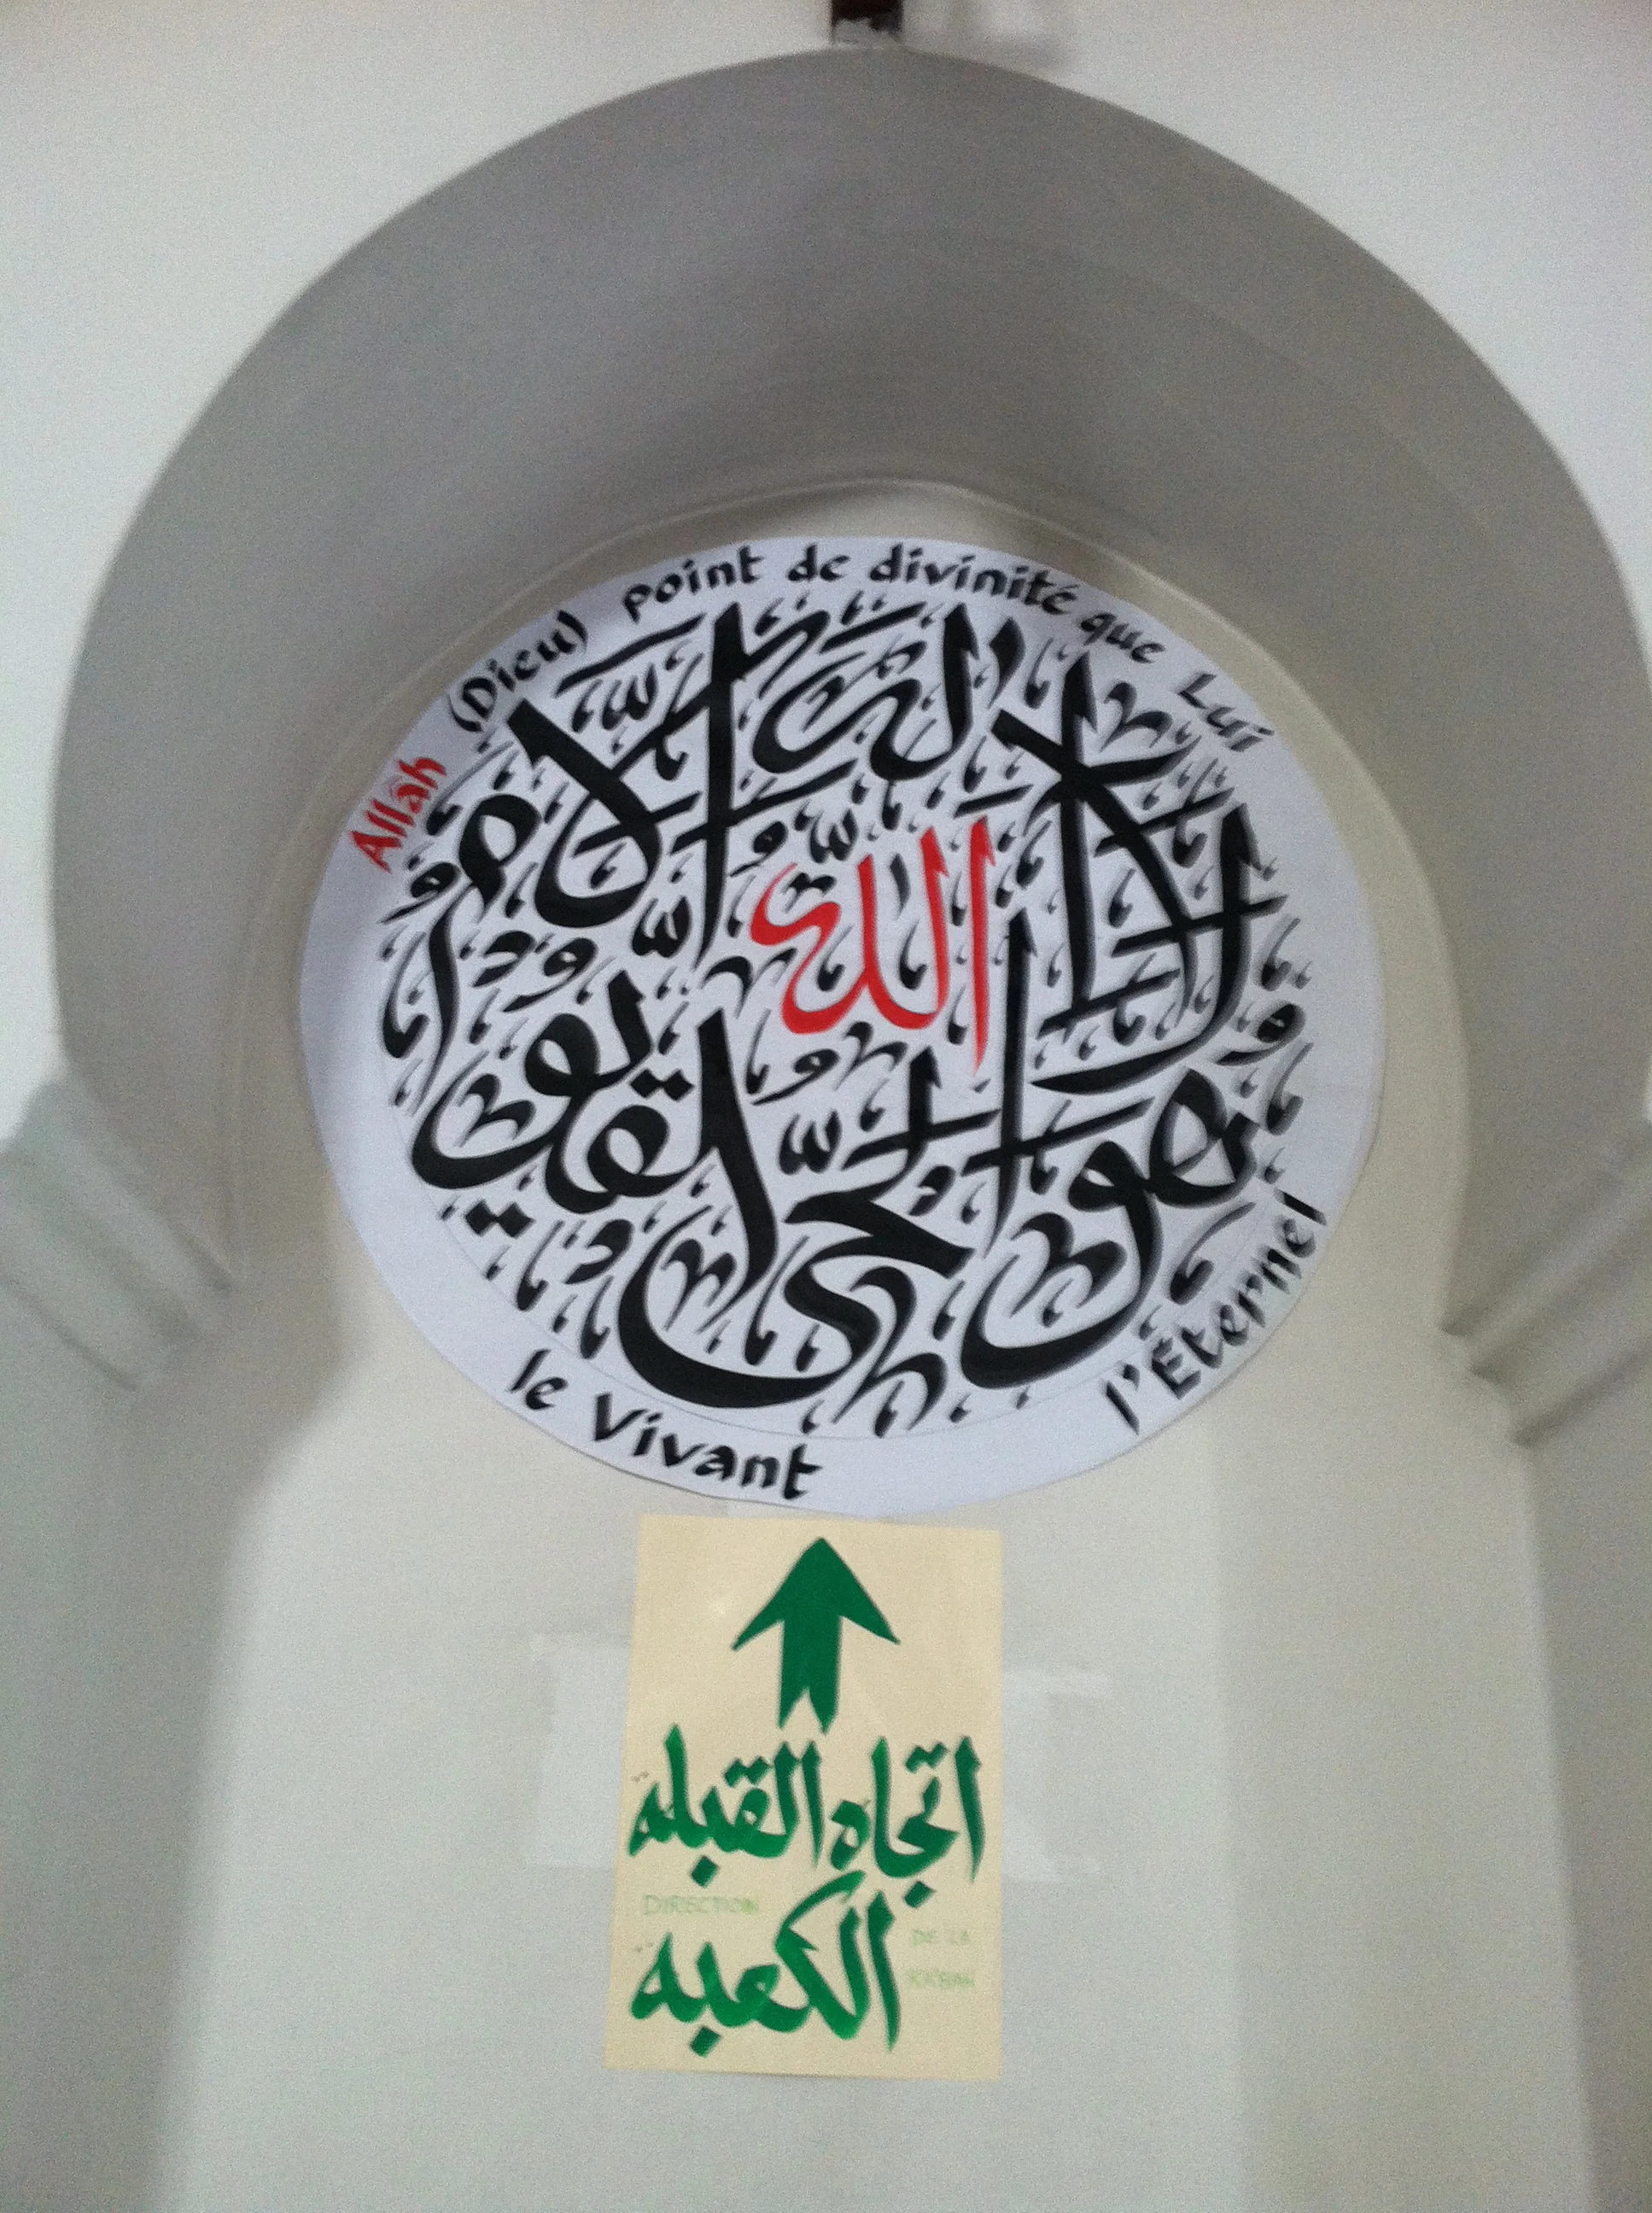 Allâh (Dieu) point de divinité que Lui
le Vivant l'Éternel
الله لا إله إلا هو الحي القيوم
اتجاه القبله
DIRECTION
الكعبه
DE LA
KA'BAH